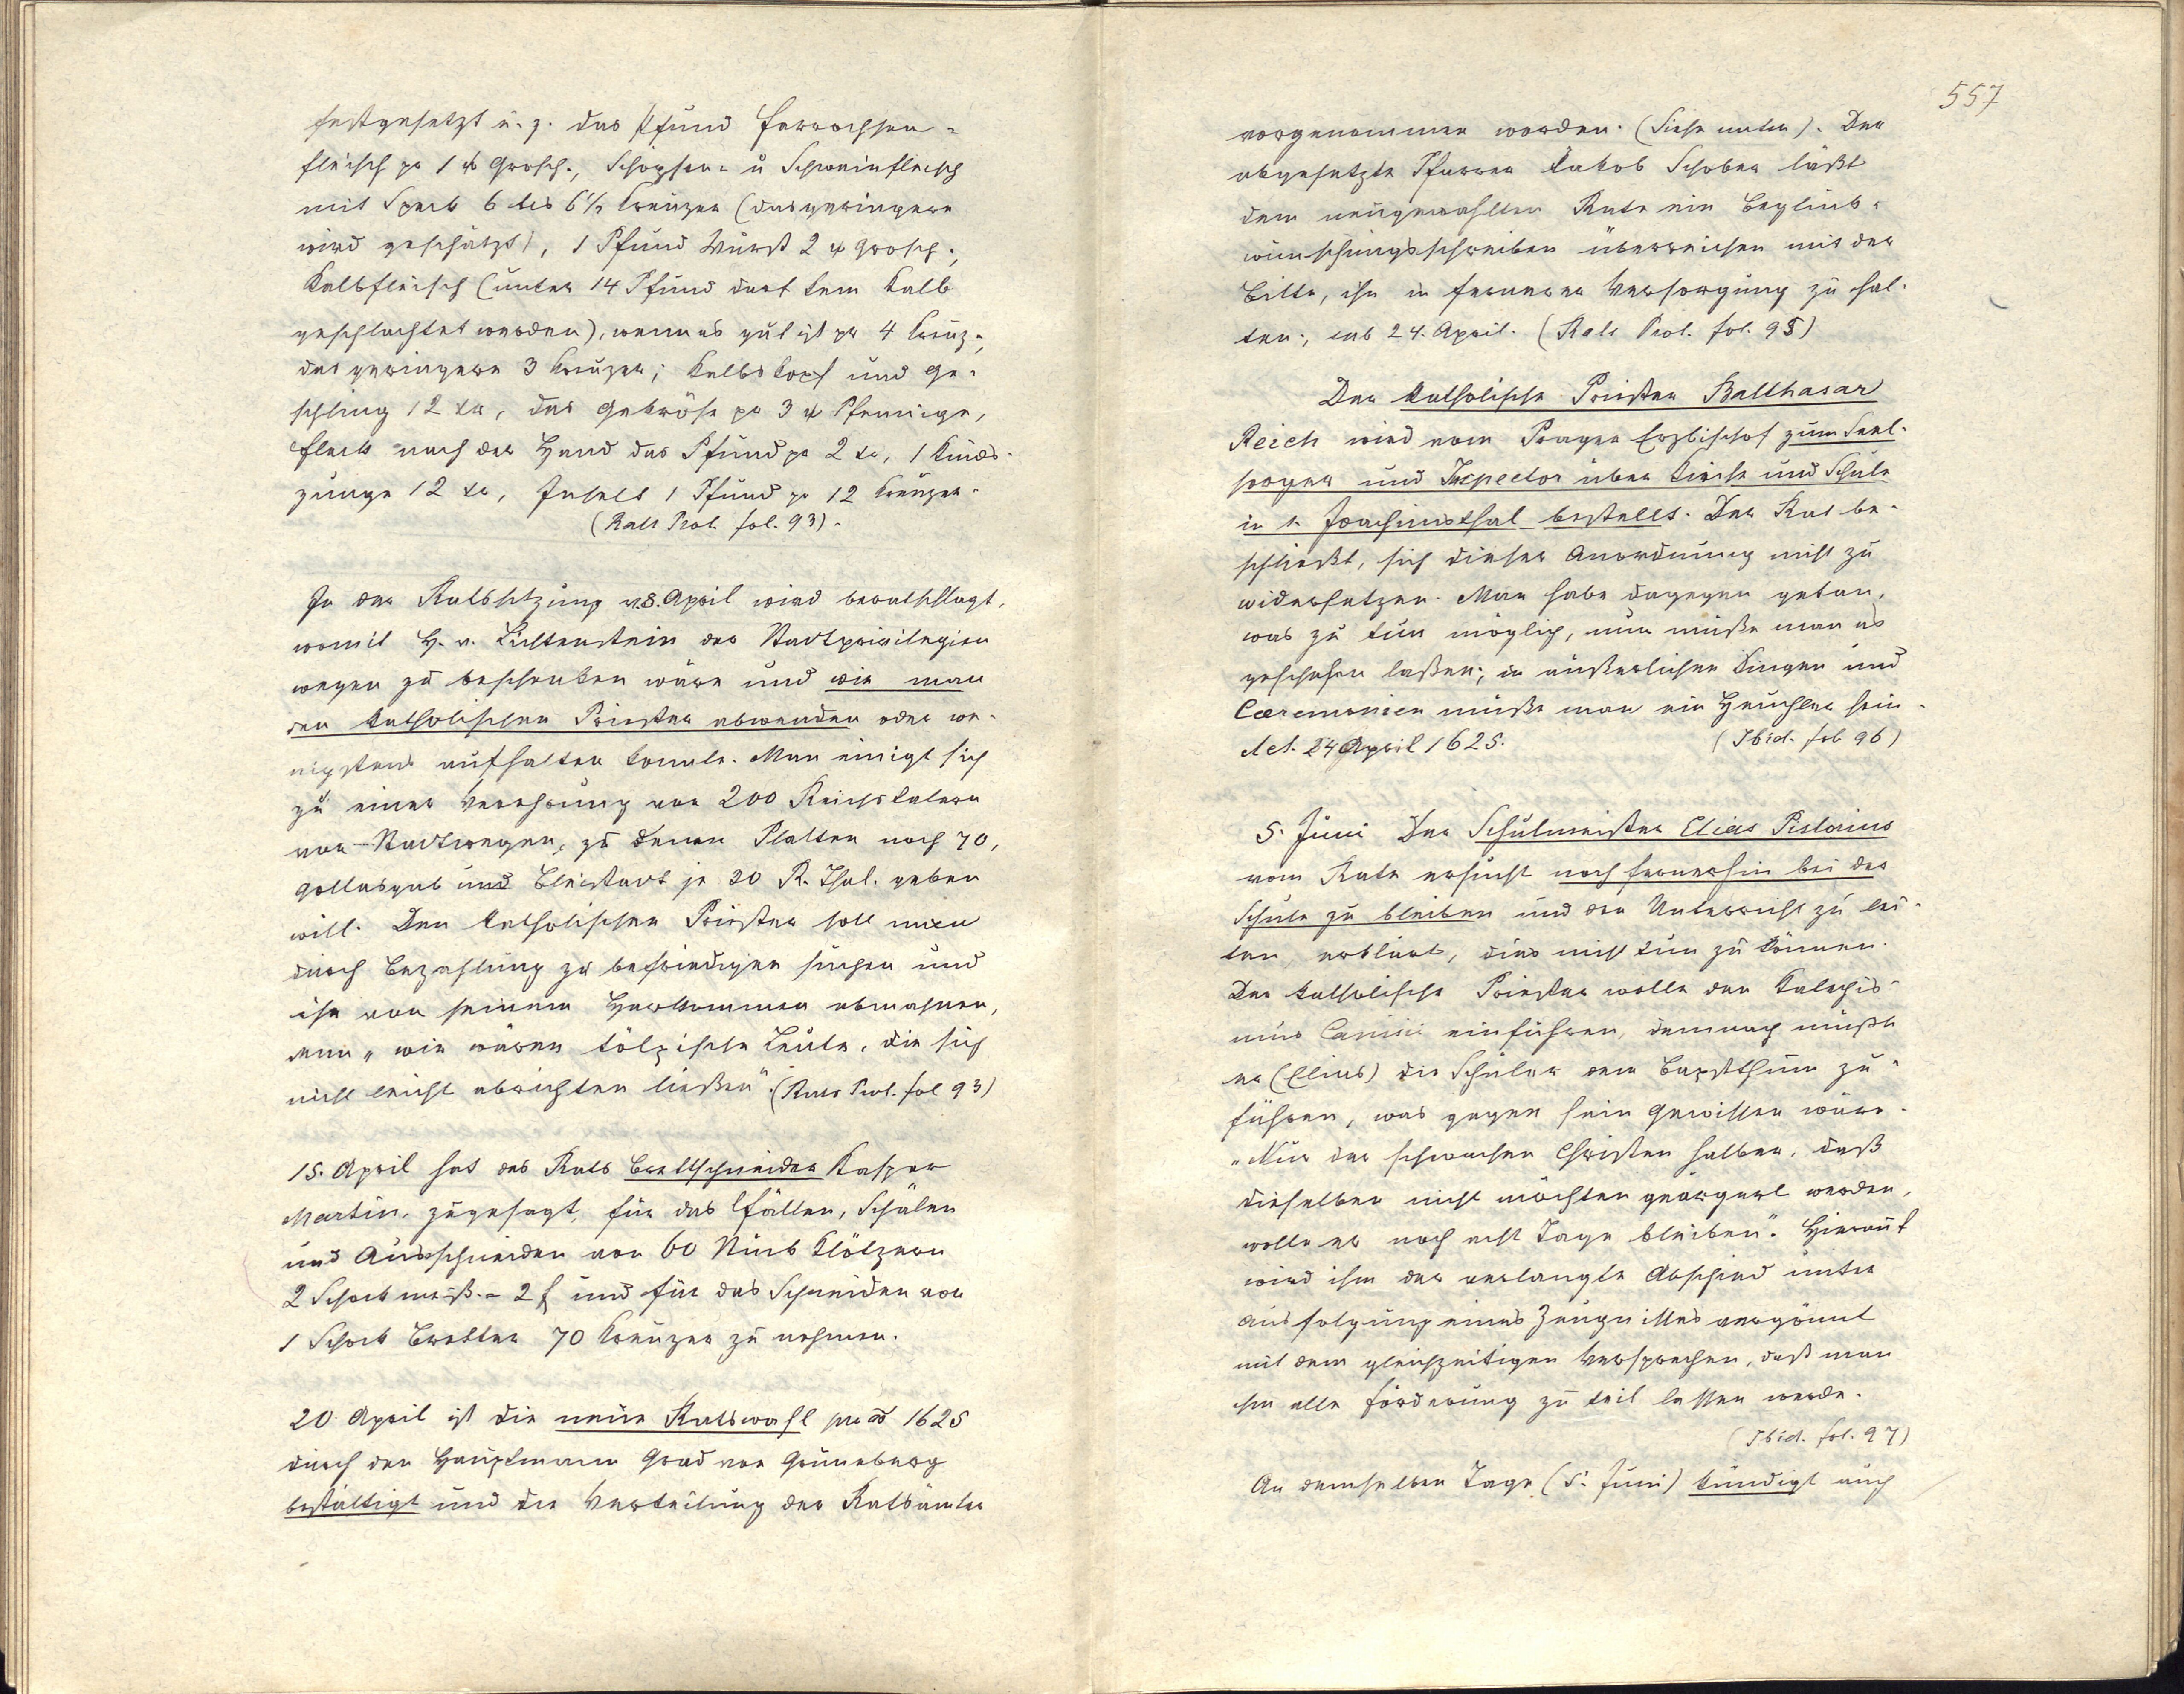 festgesetzt u. z. das Pfund
fleisch pr 1 w Grosch., Schöpsen- u Schweinfleisch
mit Speck 6 bis 6½ Kreuzer (das geringere
wird geschätzt), 1 Pfund Wurst 2 w Grosch.,
Kalbfleisch (unter 14 Pfund darf kein Kalb
geschlachtet werden), wenn es gut ist pr 4 Kreuz.,
das geringere 3 Kreuzer; Kalbskopf und Ge-
schling 12 kr, das Gekröse pr 3 w Pfennige,
Fleck nach der Hand das Pfund pr 2 kr, 1 Rinds-
zunge 12 kr, Inselt 1 Pfund pr 12 Kreuzer.
(Rats Prot. fol. 93).
In der Ratssitzung v. 8. April wird beratschlagt,
womit H. v. Lichtenstein der Stadtprivilegien
wegen zu beschenken wäre und wie man
den katholischen Priester abwenden oder we-
nigstens aufhalten könnte. Man einigt sich
zu einer Verehrung von 200 Reichstalern
von Stadtwegen, zu denen Platten noch 70,
Gottesgab und Bleistadt je 30 R. Thal. geben
will. Den katholischen Priester soll man
durch Bezahlung zu befriedigen suchen und
ihn von seinem Herkommen abmahnen,
denn „wir wären tölpische Leute, die sich
nicht leicht abrichten ließen". (Rats Prot. fol 93)
15. April hat des Rats Brettschneider Kaspar
Martin, zugesagt, für das Fällen, Schälen
und Ausschneiden von 60 Stück Klötzern
2 Schock meiß. = 2 f und für das Schneiden von
1 Schock Bretter 70 Kreuzer zu nehmen.
20. April ist die neue Ratswahl pro ao 1625
durch den Hauptmann Grad von Grüneberg
bestättigt und die Verteilung der Ratsämter
557
vorgenommen worden. (Siehe unten). Der
abgesetzte Pfarrer Jakob Schober läßt
dem neugewählten Rate ein Beglück-
wünschungsschreiben überreichen mit der
Bitte, ihn in fernerer Versorgung zu hal-
ten; sub 24. April. (Rats Prot. fol. 95)
Der katholische Priester Balthasar
Reich wird vom Prager Erzbischof zum Seel-
sorger und Inspector über Kirche und Schule
in St. Joachimsthal bestellt. Der Rat be-
schließt, sich dieser Anordnung nicht zu
widersetzen. Man habe dagegen getan,
was zu tun möglich, nun müße man es
geschehen laßen; in äußerlichen Dingen und
Cæremonien müße man ein Heuchler sein.
det. 24 April 1625. (Ibid. fol 96)
5. Juni Der Schulmeister Elias Pistorius
vom Rate ersucht noch fernerhin bei der
Schule zu bleiben und den Unterricht zu lei-
ten, erklärt, dies nicht tun zu können.
Der katholische Priester wolle den Katechis-
mus Canisii einführen, demnach müßte
er (Elias) die Schüler dem Bapstthum zu-
führen, was gegen sein Gewissen wäre.
„Nur der schwachen Christen halber, daß
dieselben nicht möchten geärgert werden,
wolle er noch acht Tage bleiben". Hierauf
wird ihm der verlangte Abschied unter
Ausfolgung eines Zeugnisses vergönnt
mit dem gleichzeitigen Versprechen, daß man
ihm alle Förderung zu teil lassen werde.
(Ibid. fol. 97)
An demselben Tage (5. Juni) kündigt auch